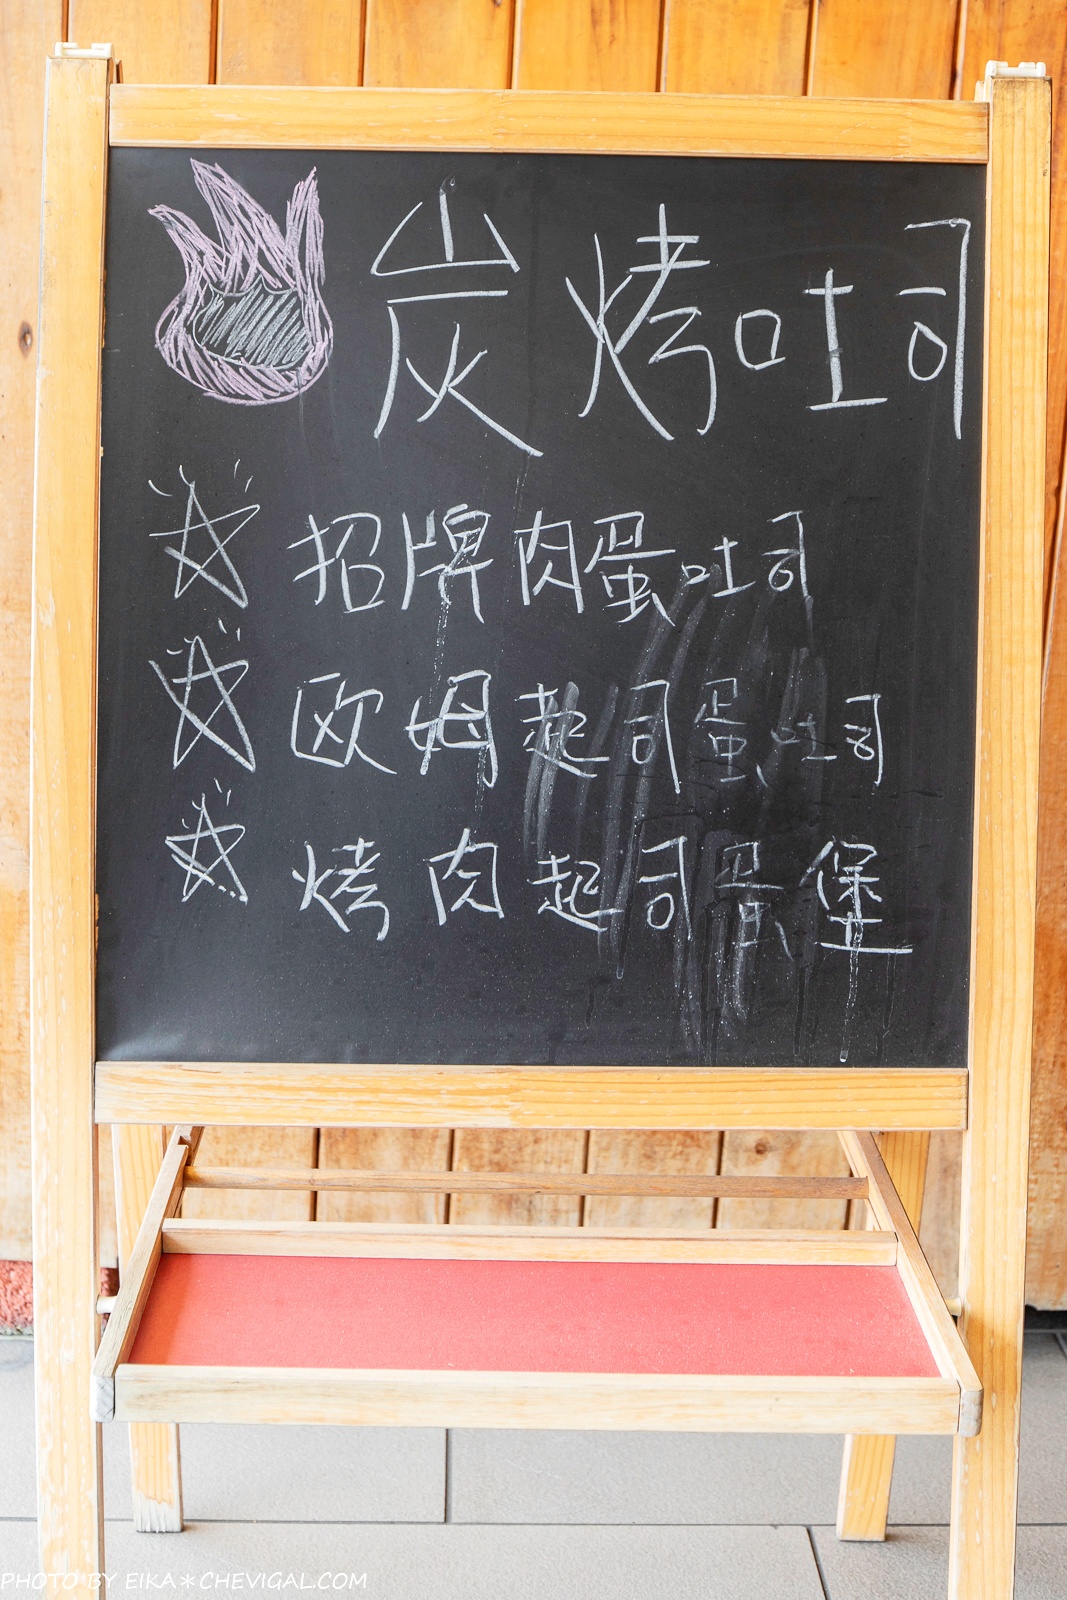 炭烤吐司
招牌肉蛋吐司
欧姆起司蛋吐司
烤肉起司蛋堡
PHOTO BY EIKA＊CHEVIGAL.COM